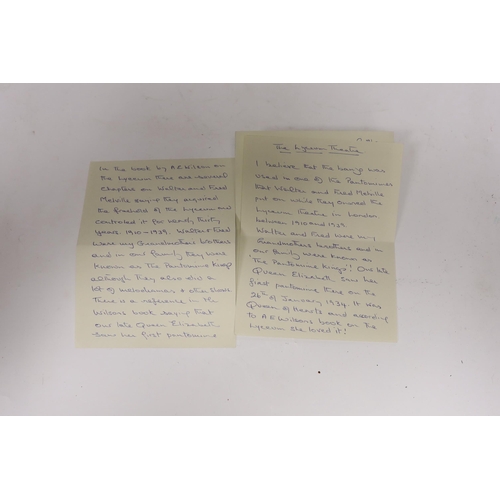 In the book by A.E Wilson on
the Lyceum there are several
chapters on Walter and Fred
Melville saying they acquired
the freehold of the Lyceum and
controlled it for nearly thirty
years. 1910-1939. Walter & Fred
were my Grandmothers brothers
and in our family they were
known as The Pantomime Kings
although they also did a
lot of melodramas + other
There is a reference in Mr
Wilsons book saying that
our late Queen Elizabeth
saw her first pantomime
The Lyceum Theatre
I believe that the was
used in one of the Pantomimes
that Walter and Fred Melville
put on while they owned the
Lyceum Theatre in London
between 1910 and 1939.
Walter and Fred were my
Grandmothers brothers and in
our family were known as
'The Pantomime Kings'. Our late
Queen Elizabeth saw her
first pantomime there on the
26th of January 1934. It was
Queen of Hearts and according
to A E Wilsons book on the
Lyceum she loved it!